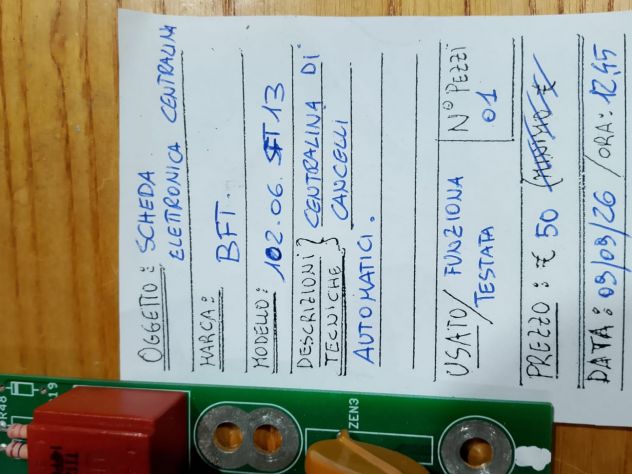 OGGETTO: SCHEDA
ELETTRONICA CENTRALINA
MARCA: BFT.
MODELLO: 102.06. SFT13
DESCRIZIONI } CENTRALINA DI
TECNICHE } CANCELLI
AUTOMATICI.
USATO/FUNZIONA
TESTATA
N° PEZZI
01
PREZZO: € 50
DATA: 09/09/26 /ORA: 12,45
R48
19
ZEN3